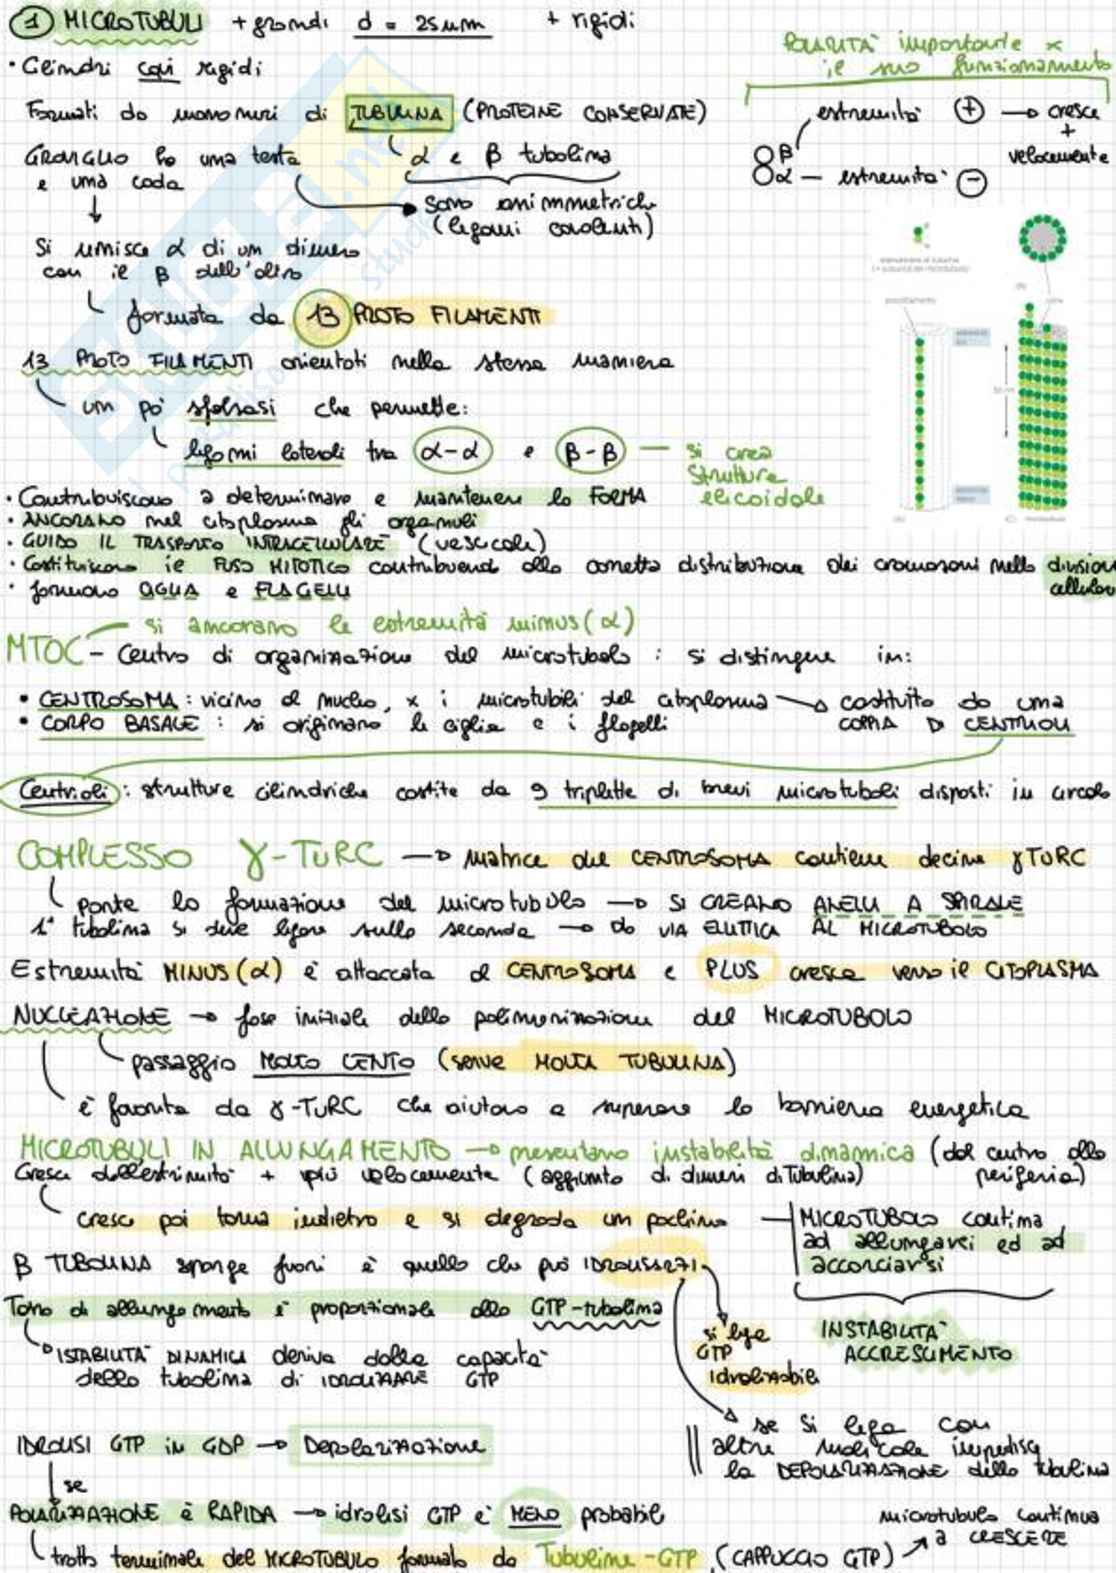 1 MICROTUBULI + grandi d = 25 nm + rigidi
POLARITÀ importante x
il suo funzionamento
• Cilindri cavi rigidi
Formati da monomeri di TUBULINA (PROTEINE CONSERVATE)
estremità + → cresce
+
velocemente
GROVIGLIO ha una testa
e una coda
α e β tubolina
β
α — estremità -
sono asimmetrich
(legami covalenti)
Si unisce α di un dimero
con il β dell'altro
formata da 13 PROTO FILAMENTI
13 PROTO FILAMENTI orientati nella stessa maniera
un pò sfalsasi che permette:
legami laterali tra α-α e β-β — si crea
struttura
elicoidale
• Contribuiscono a determinare e mantenere la FORMA
• ANCORANO nel citoplasma gli organuli
• GUIDO IL TRASPORTO INTRACELLULARE (vescicole)
• Costituiscono il FUSO MITOTICO contribuendo alla corretta distribuzione dei cromosomi nella division
cellular
• formano CIGLIA e FLAGELLI
si ancorano le estremità minus (α)
MTOC - Centro di organizzazione del microtubolo : si distingue in:
• CENTROSOMA : vicino al nucleo, x i microtubili del citoplasma → costituito da una
COPPIA DI CENTRIOLI
• CORPO BASALE : si originano le ciglia e i flagelli
Centrioli : strutture cilindriche costite da 9 triplette di brevi microtuboli disposti in circolo
COMPLESSO γ-TURC → matrice del CENTROSOMA contiene decine γTURC
ponte la formazione del microtubulo → SI CREANO ANELLI A SPIRALE
1° tubolina si deve legare sulla seconda → do VIA ELLITICA AL MICROTUBOLO
Estremità MINUS (α) è attaccata al CENTROSOMA e PLUS cresce verso il CITOPLASMA
NUCLEAZIONE → fase iniziale della polimerizzazione del MICROTUBOLO
passaggio MOLTO LENTO (serve MOLTA TUBULINA)
è favorita da γ-TURC che aiutano a superare la barriera energetica
MICROTUBULI IN ALLUNGAMENTO → presentano instabilità dinamica (dal centro alla
periferia)
Cresce dall'estrimità + più velocemente (aggiunta di dimeri di Tubulina)
cresce poi torna indietro e si degrada un pochino — MICROTUBOLO continua
ad allungarsi ed ad
accorciarsi
β TUBOLINA sporge fuori è quella che può IDROLISARSI
Tasso di allungamento è proporzionale alla GTP-tubolina
si lega
GTP
idrolizzabile
INSTABILITÀ
ACCRESCIMENTO
ISTABILITÀ DINAMICA deriva dalla capacità
della tubolina di IDROLIZZARE GTP
se si lega con
altre molicole impedisce
la DEPOLARIZZAZIONE della tubolina
IDROLISI GTP in GDP → Depolarizzazione
se
POLARIZZAZIONE è RAPIDA → idrolisi GTP è MENO probabile
microtubulo continua
a CRESCERE
tratto terminale del MICROTUBULO formato da Tubulina-GTP (CAPPUCCIO GTP)